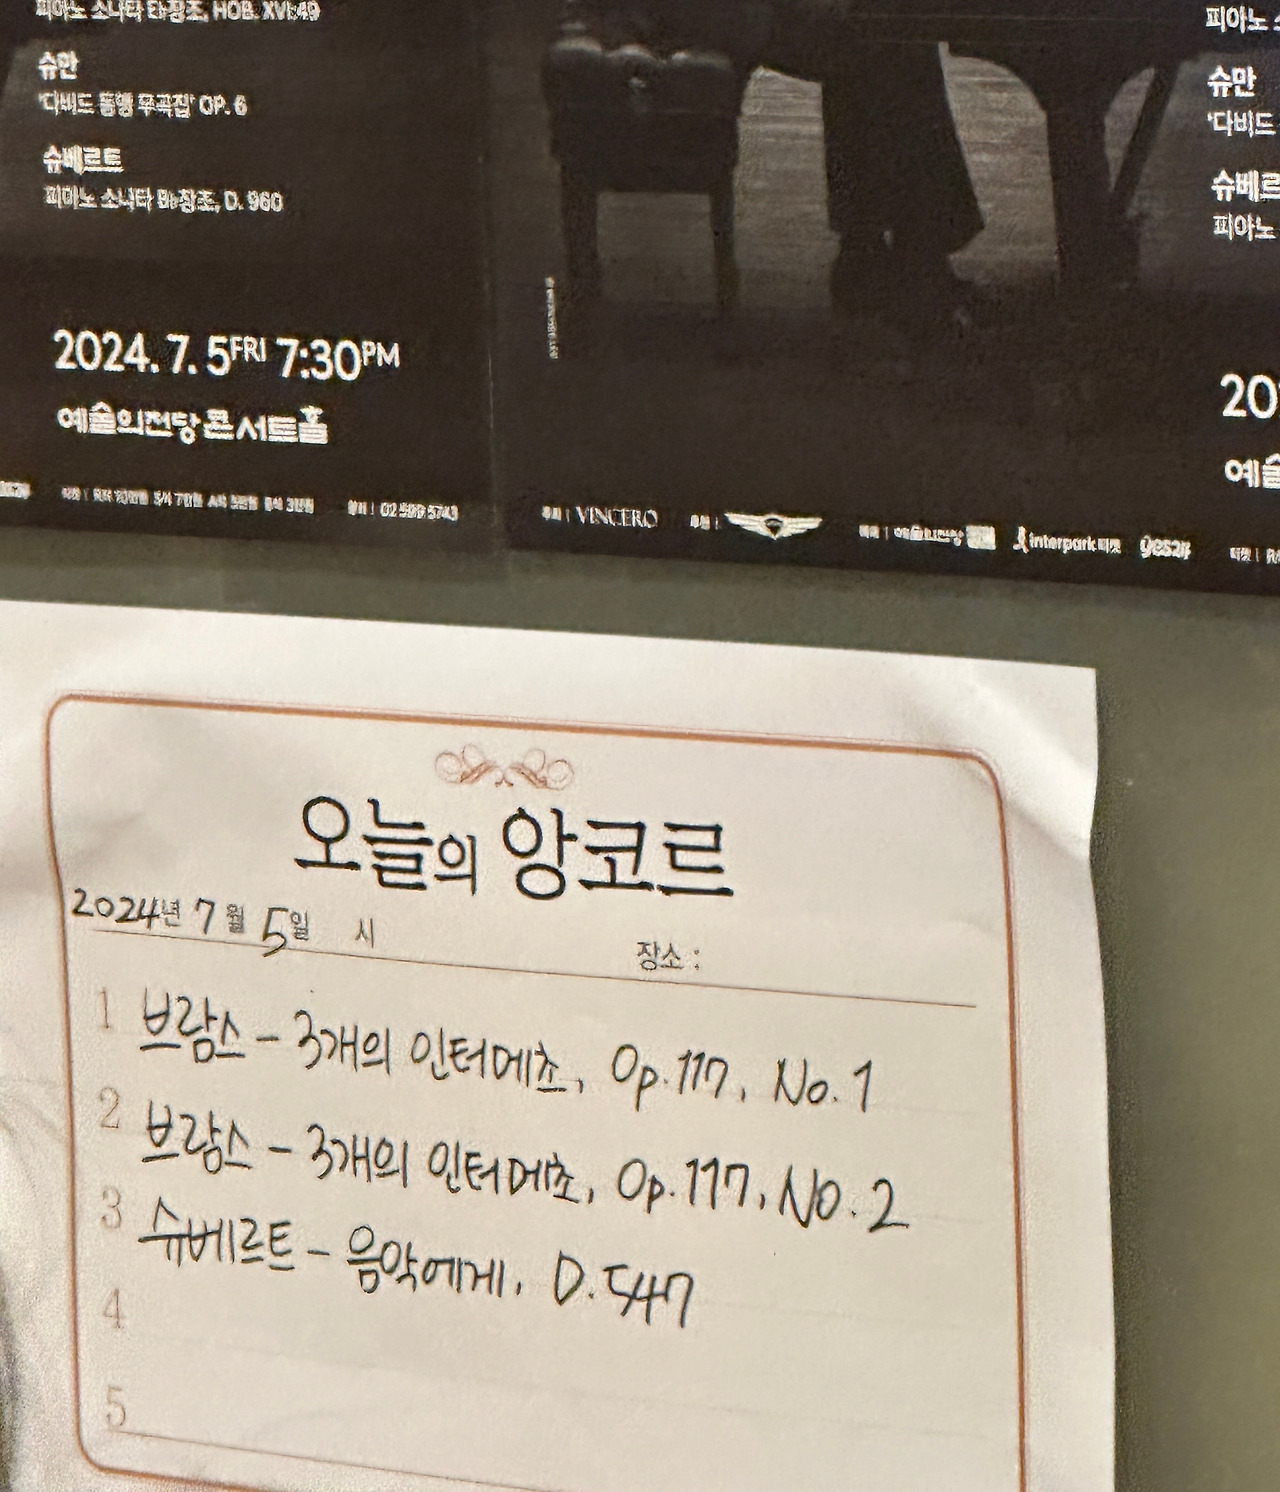 피아노 소나타 E♭장조, HOB. XVI:49
슈만
'다비드 동맹 무곡집' OP. 6
슈베르트
피아노 소나타 B♭장조, D. 960
2024. 7. 5 FRI 7:30PM
예술의전당 콘서트홀
02 599 5743
VINCERO
interpark 티켓 yes24
피아노
슈만
'다비드
슈베르
피아노
20
예술
오늘의 앙코르
2024년 7월 5일 시 장소 :
1 브람스 - 3개의 인터메초, Op. 117, No. 1
2 브람스 - 3개의 인터메초, Op. 117, No. 2
3 슈베르트 - 음악에게, D. 547
4
5